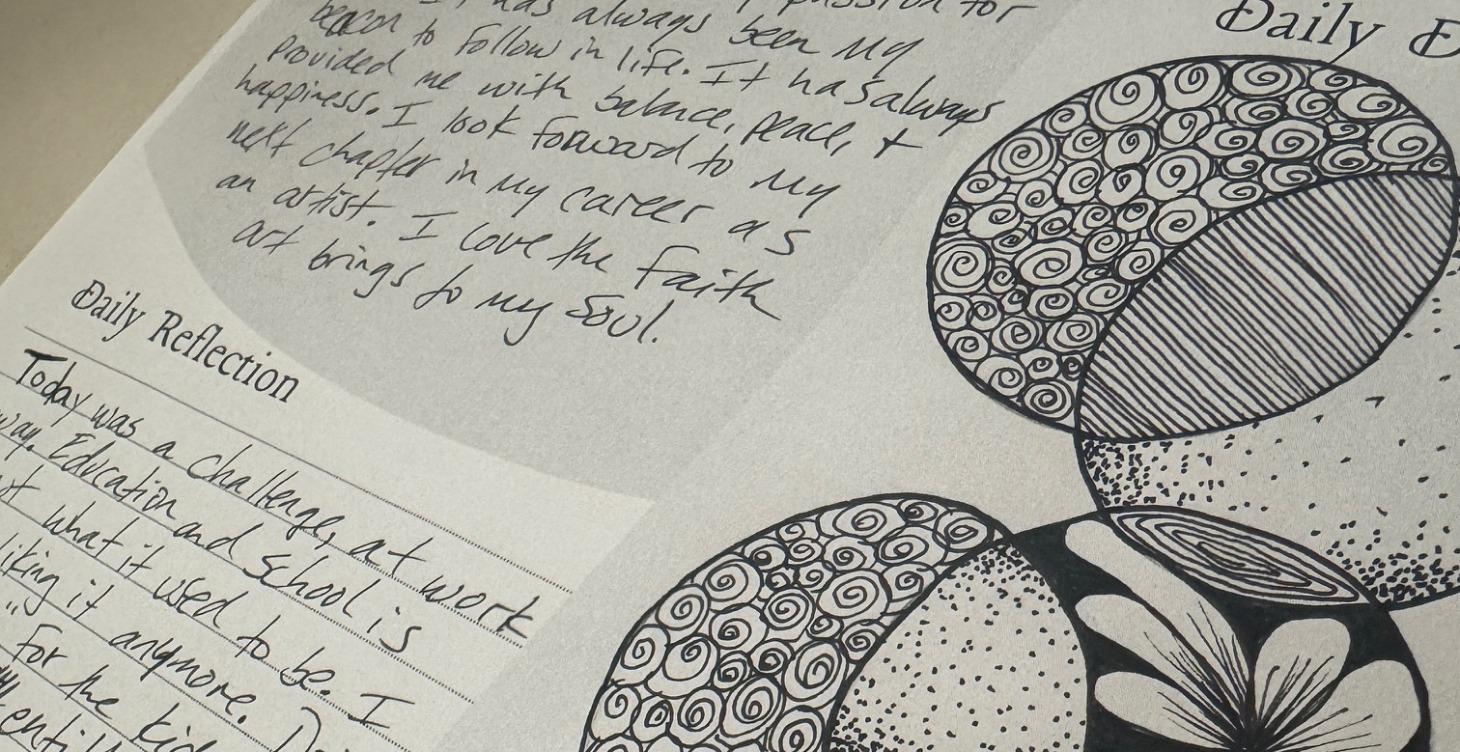 has always been my
beacon to follow in life. It has always
provided me with balance, peace, +
happiness. I look forward to my
next chapter in my career as
an artist. I love the faith
art brings to my soul.
Daily Reflection
Today was a challenge, at work
way. Education and school is
what it used to be. I
liking it anymore.
for the
Daily